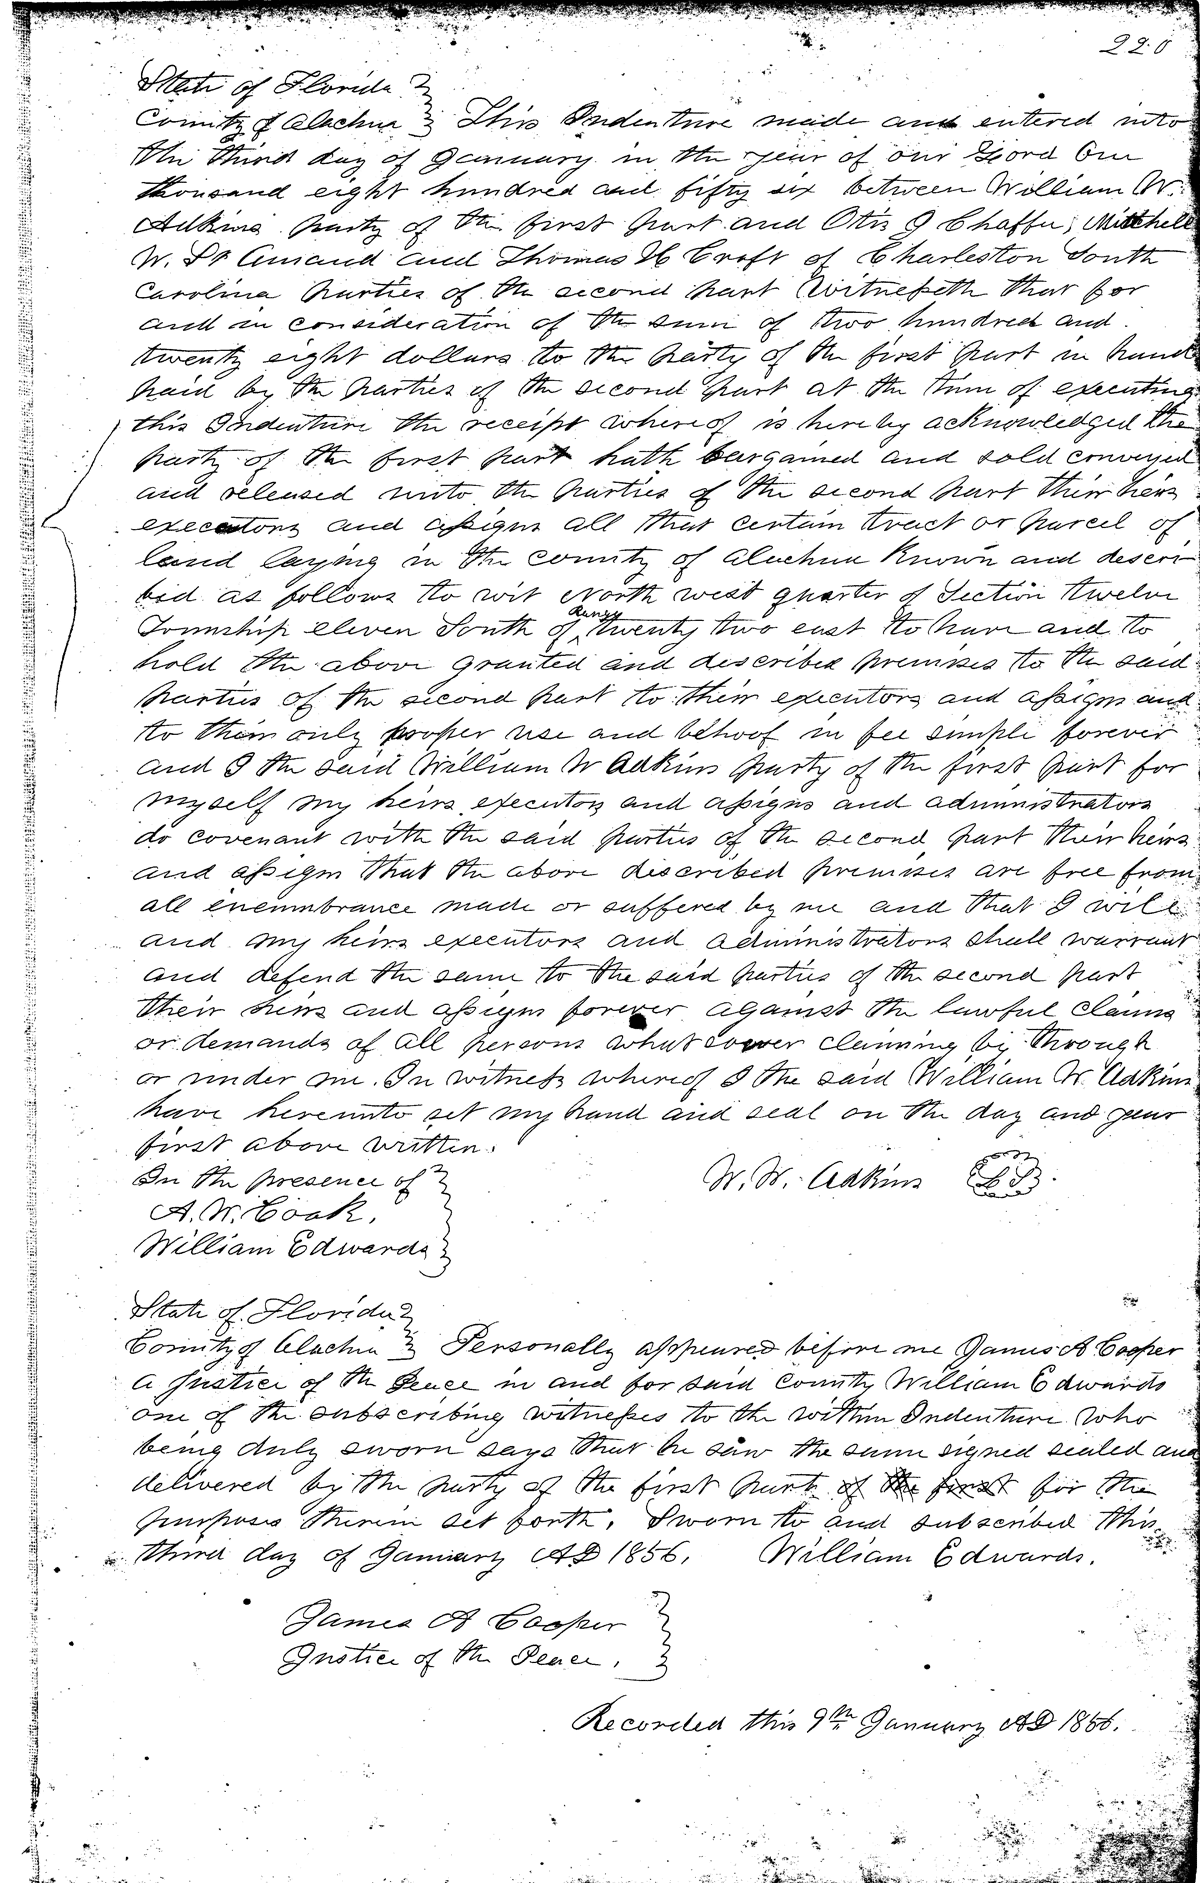 220
State of Florida }
County of Alachua } This Indenture made and entered into
the third day of January in the year of our Lord One
thousand eight hundred and fifty six between William W.
Adkins party of the first part and Otis J Chaffee, Mitchell
W. St Amand and Thomas H Croft of Charleston South
Carolina parties of the second part Witnesseth that for
and in consideration of the sum of two hundred and
twenty eight dollars to the party of the first part in hand
paid by the parties of the second part at the time of executing
this Indenture the receipt whereof is hereby acknowledged the
party of the first part hath bargained and sold conveyed
and released unto the parties of the second part their heirs
executors and assigns all that certain tract or parcel of
land laying in the county of Alachua Known and descri
bed as follows to wit North west quarter of Section twelve
Township eleven South of Range twenty two east to have and to
hold the above granted and described premises to the said
parties of the second part to their executors and assigns and
to their only proper use and behoof in fee simple forever
and I the said William W Adkins party of the first part for
myself my heirs executors and assigns and administrators
do covenant with the said parties of the second part their heirs
and assigns that the above described premises are free from
all encumbrance made or suffered by me and that I will
and my heirs executors and administrators shall warrant
and defend the same to the said parties of the second part
their heirs and assigns forever against the lawful claims
or demands of all persons whatsoever claiming by through
or under me. In witness whereof I the said William W. Adkins
have hereunto set my hand and seal on the day and year
first above written.
In the presence of }
W. W. Adkins LS.
A. W. Cook.
William Edwards }
State of Florida }
County of Alachua } Personally appeared before me James A Cooper
a Justice of the Peace in and for said County William Edwards
one of the subscribing witnesses to the within Indenture who
being duly sworn says that he saw the same signed sealed and
delivered by the party of the first part of the first for the
purposes therein set forth. Sworn to and subscribed this
third day of January AD 1856. William Edwards.
James A Cooper }
Justice of the Peace. }
Recorded this 9th January AD 1856.